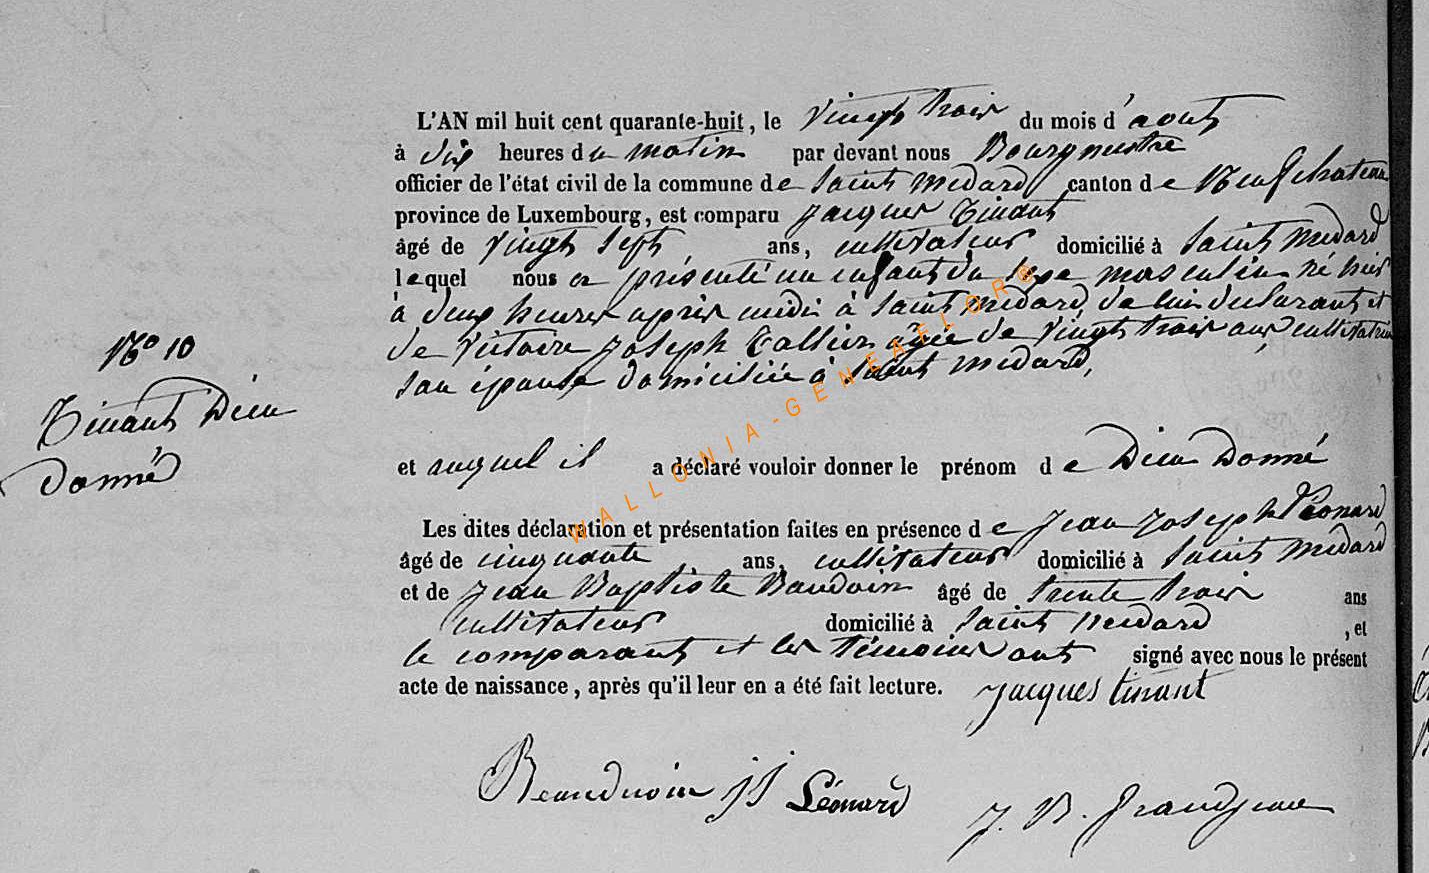 L'AN mil huit cent quarante-huit, le vingt trois du mois d'aout
à dix heures du matin par devant nous Bourgmestre
officier de l'état civil de la commune de Saint Médard canton de Neufchateau
province de Luxembourg, est comparu Jacques Tinant
âgé de vingt sept ans, cultivateur domicilié à Saint Médard
lequel nous a présenté un enfant du sexe masculin né hier
à deux heures après midi à Saint Médard, de lui déclarant et
de Victoire Joseph Tallier agée de vingt trois ans cultivatrice
son épouse domiciliée à Saint Médard,
N° 10
Tinant Dieu
donné
et auquel il a déclaré vouloir donner le prénom de Dieu Donné
Les dites déclaration et présentation faites en présence de Jean Joseph Léonard
âgé de cinquante ans, cultivateur domicilié à Saint Médard
et de Jean Baptiste Baudoin âgé de trente trois ans
cultivateur domicilié à Saint Médard, et
le comparant et les témoins ont signé avec nous le présent
acte de naissance, après qu'il leur en a été fait lecture. Jacques tinant
Beauduoin JJ Léonard J. B. Grandjean
WALLONIA-GENEAFLORE